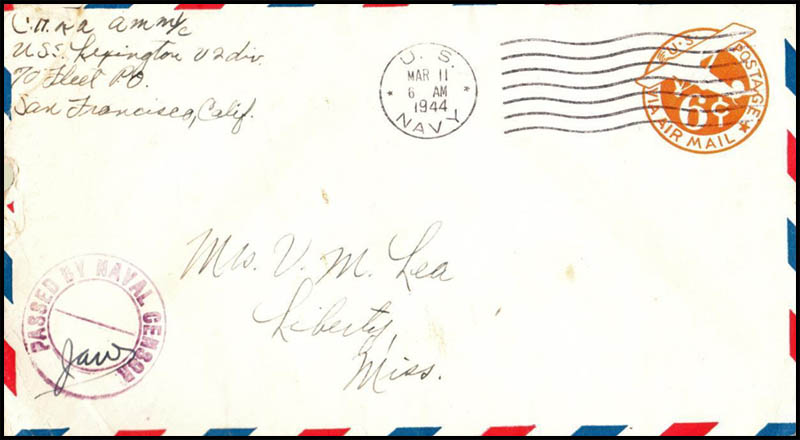 U.S.S. Lexington V2 div.
% Fleet P.O.
San Francisco, Calif.
U. S.
MAR 11
6 AM
1944
NAVY
U.S. POSTAGE
6¢
VIA AIR MAIL
Mrs. V. M. Lea
Liberty,
Miss.
PASSED BY NAVAL CENSOR